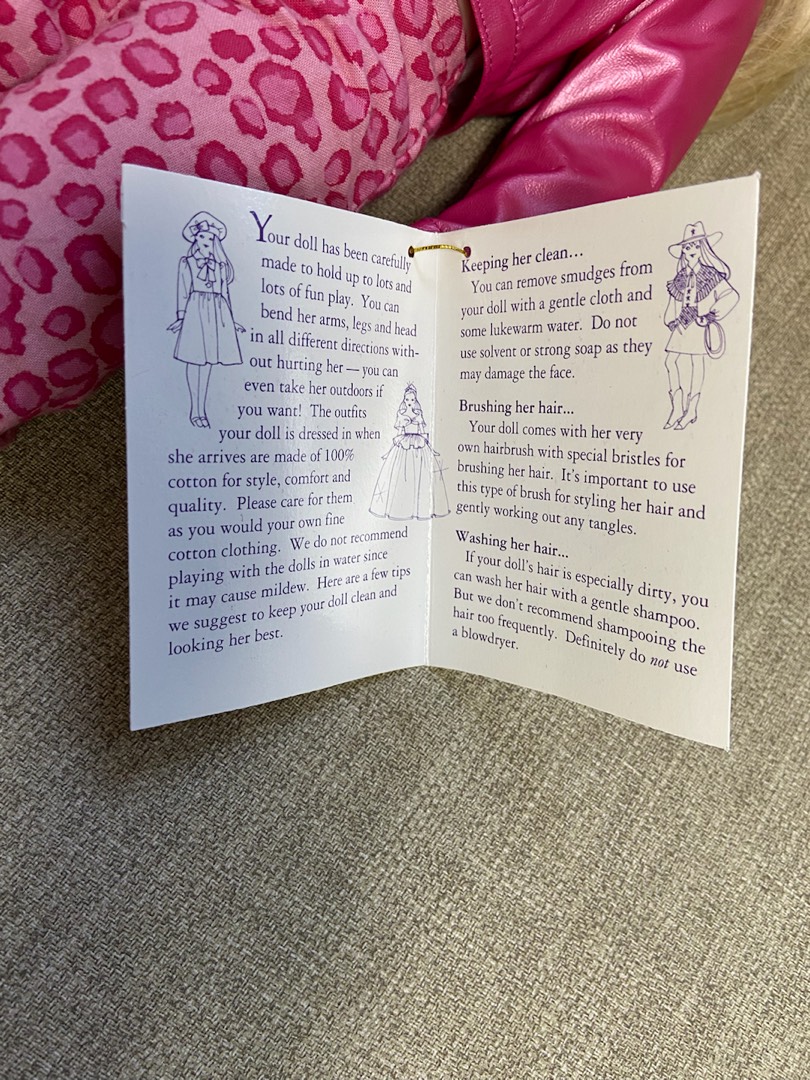 Your doll has been carefully
made to hold up to lots and
lots of fun play. You can
bend her arms, legs and head
in all different directions with-
out hurting her — you can
even take her outdoors if
you want! The outfits
your doll is dressed in when
she arrives are made of 100%
cotton for style, comfort and
quality. Please care for them
as you would your own fine
cotton clothing. We do not recommend
playing with the dolls in water since
it may cause mildew. Here are a few tips
we suggest to keep your doll clean and
looking her best.
Keeping her clean...
You can remove smudges from
your doll with a gentle cloth and
some lukewarm water. Do not
use solvent or strong soap as they
may damage the face.
Brushing her hair...
Your doll comes with her very
own hairbrush with special bristles for
brushing her hair. It's important to use
this type of brush for styling her hair and
gently working out any tangles.
Washing her hair...
If your doll's hair is especially dirty, you
can wash her hair with a gentle shampoo.
But we don't recommend shampooing the
hair too frequently. Definitely do not use
a blowdryer.